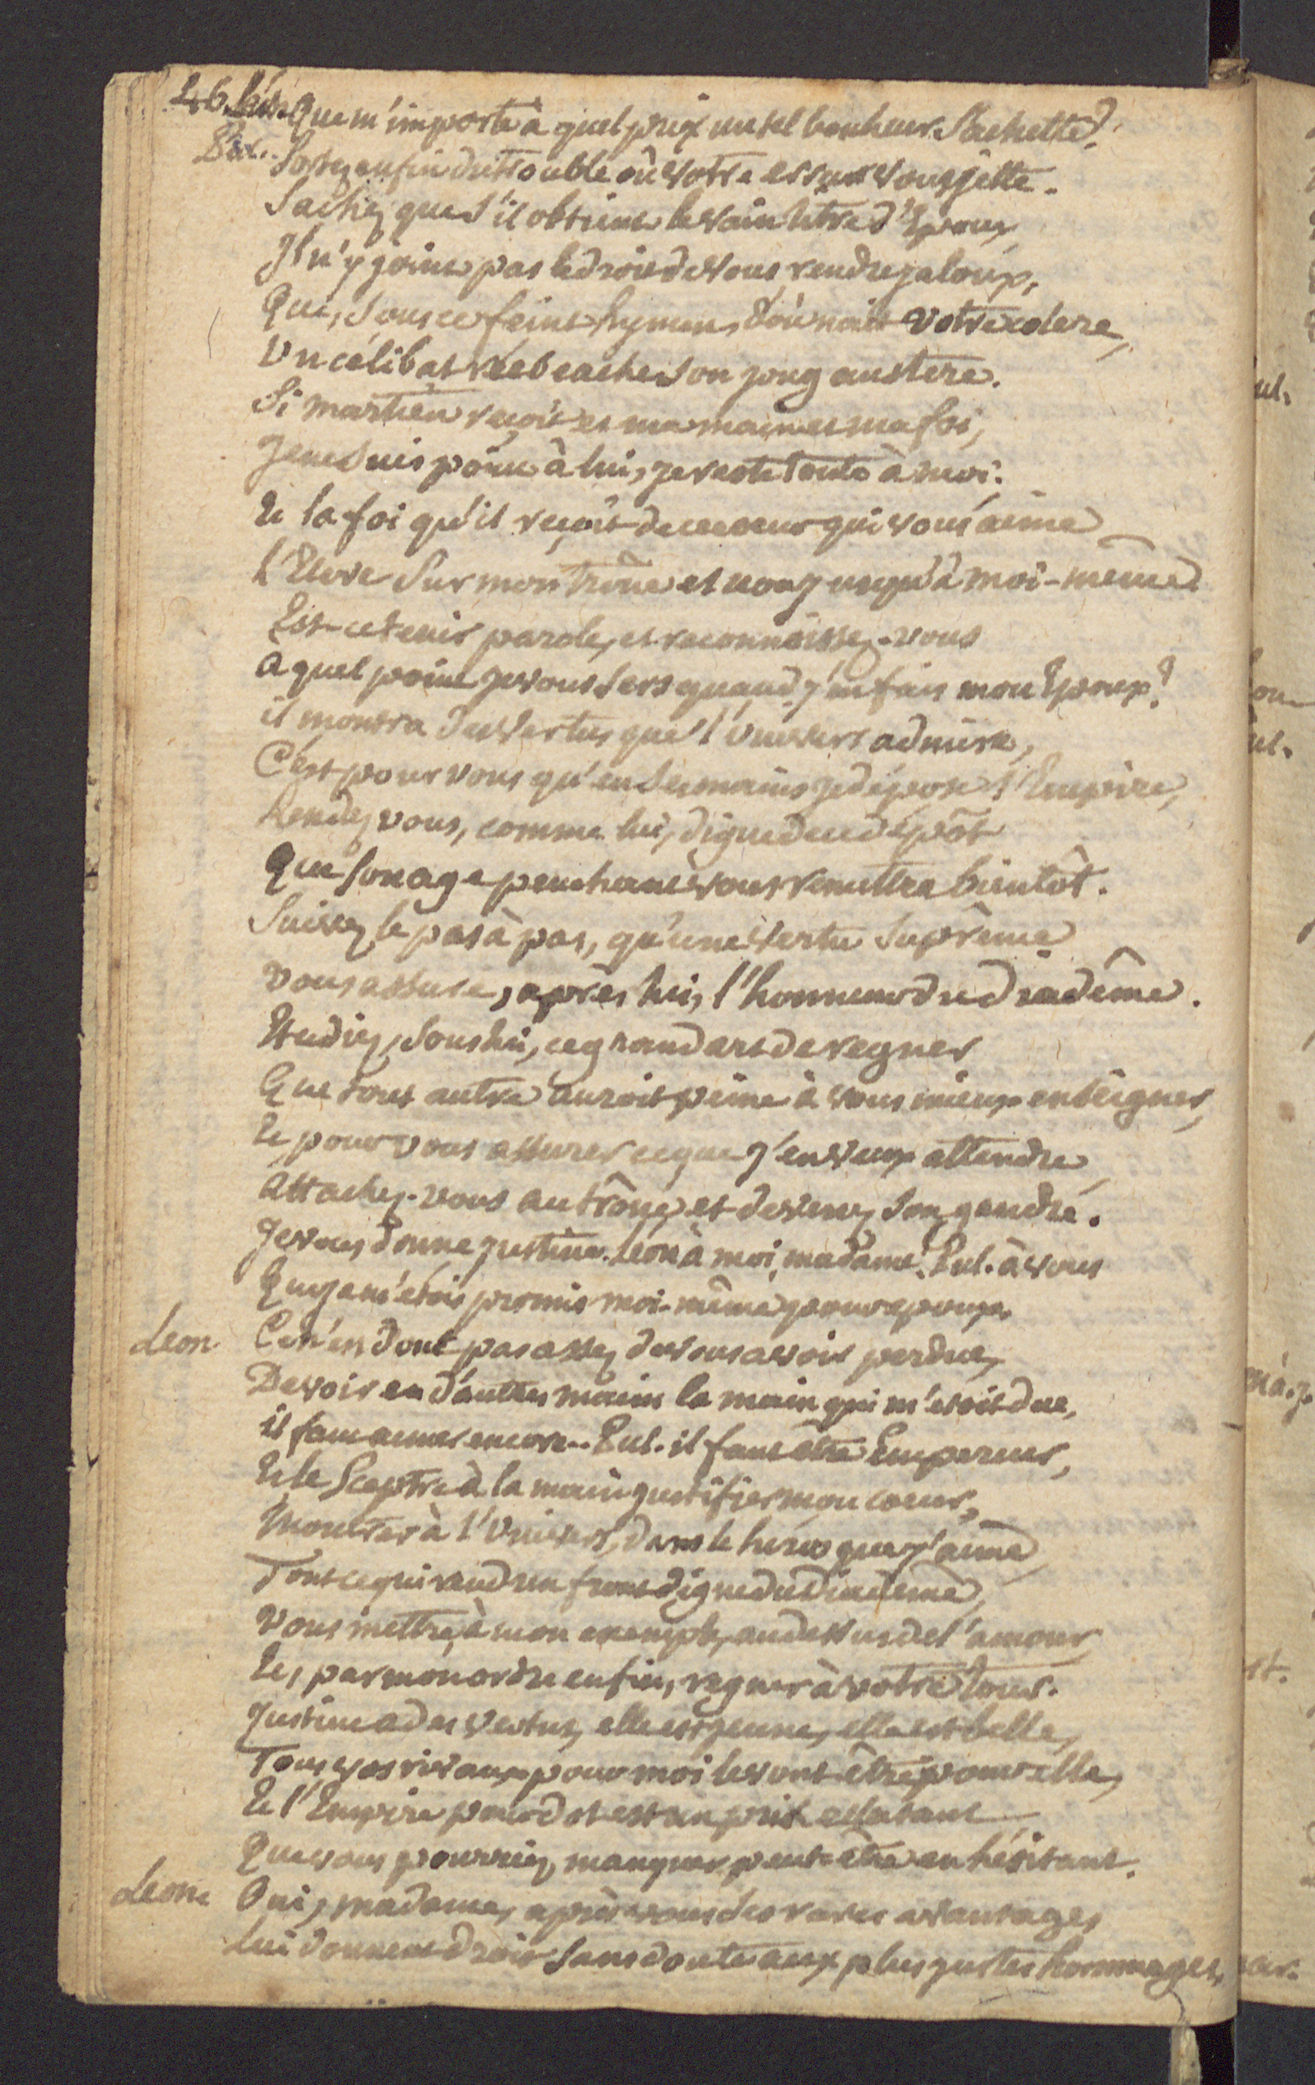 46. Léon. Que m'importe à quel prix un tel bonheur s'achette?
Pul. Sortez enfin du trouble où votre erreur vous jette.
Sachez que s'il obtient le vain titre d'Epoux,
Il n'y joint pas le droit de vous rendre jaloux,
Que, sous ce feint hymen, d'où nait votre colere,
Un célibat caché son joug austere.
Si martien reçoit et ma main et ma foi,
Je ne suis point à lui, je reste toute à moi.
Et la foi qu'il reçoit de ce coeur qui vous aime
L'Eleve sur mon trône et non jusqu'à moi-même.
Est-ce tenir parole, et reconnoissez-vous
a quel point je vous sers quand j'en fais mon Epoux?
il montra des vertus que l'univers admire,
C'est pour vous qu'en ses mains je dépose l'Empire,
Rendez vous, comme lui, digne de ce dépôt
Que son age penchant vous remettra bientôt.
Suivez le pas à pas, qu'une vertu Suprême
vous assure, après lui, l'honneur du diadême.
Etudiez, sous lui, ce grand art de regner
Que tout autre auroit peine à vous mieux enseigner,
Et pour vous assurer ce que j'en veux attendre
Attachez-vous au trône, et devenez son gendre.
Je vous donne Justine. Léon à moi, madame! Pul. à vous
Que je m'etois promis moi-même pour epoux.
Leon Ce n'est donc pas assez de vous avoir perdue,
De voir en d'autres mains la main qui m'etoit due,
il faut aimer encore.. Pul. il faut être Empereur,
Et le Sceptre à la main justifier mon coeur,
Montrer à l'Univers, dans le heros que j'aime
Tout ce qui rend un front digne du diademe,
Vous mettre, à mon exemple, au dessus de l'amour
Et, par mon ordre enfin, regner à votre tour.
Justine a des vertus, elle est jeune, elle est belle,
Tous vos rivaux pour moi le vont être pour elle,
Et l'Empire pour dot est un prix eclatant
Que vous pourriez manquer peut-être en hésitant.
Leon Oui, madame, après vous ses rares avantages
Lui donnent droit sans doute aux plus justes hommages,